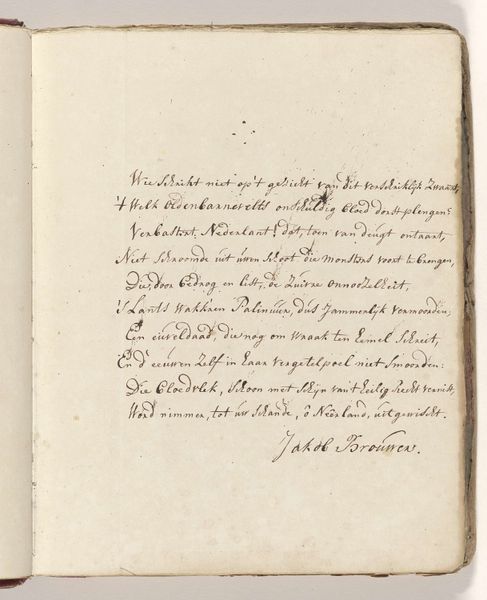 Wie schrikt niet op 't gezicht van dit verschriklijk Zwaart,
't Welk Oldenbarnevelts onschuldig bloed dorst plengen?
Verbastert Nederlant! dat, toen van deugt ontaart,
Niet schroomde uit uwen schoot die monsters voort te brengen,
Die, door bedrog en list, de Zuivre onnozelheit,
's Lants wakk'ren Palinuur, dus jammerlyk vermoorden;
Een euveldaad, die nog om wraak ten hemel schreit,
En d' eeuwen zelf in haar vergetelpoel niet smoorden:
Die bloedvlek, schoon met schyn van 't heilig Recht vernist,
Word nimmer, tot uw schande, ô Neêrland, uitgewischt.
Jakob Brouwer.